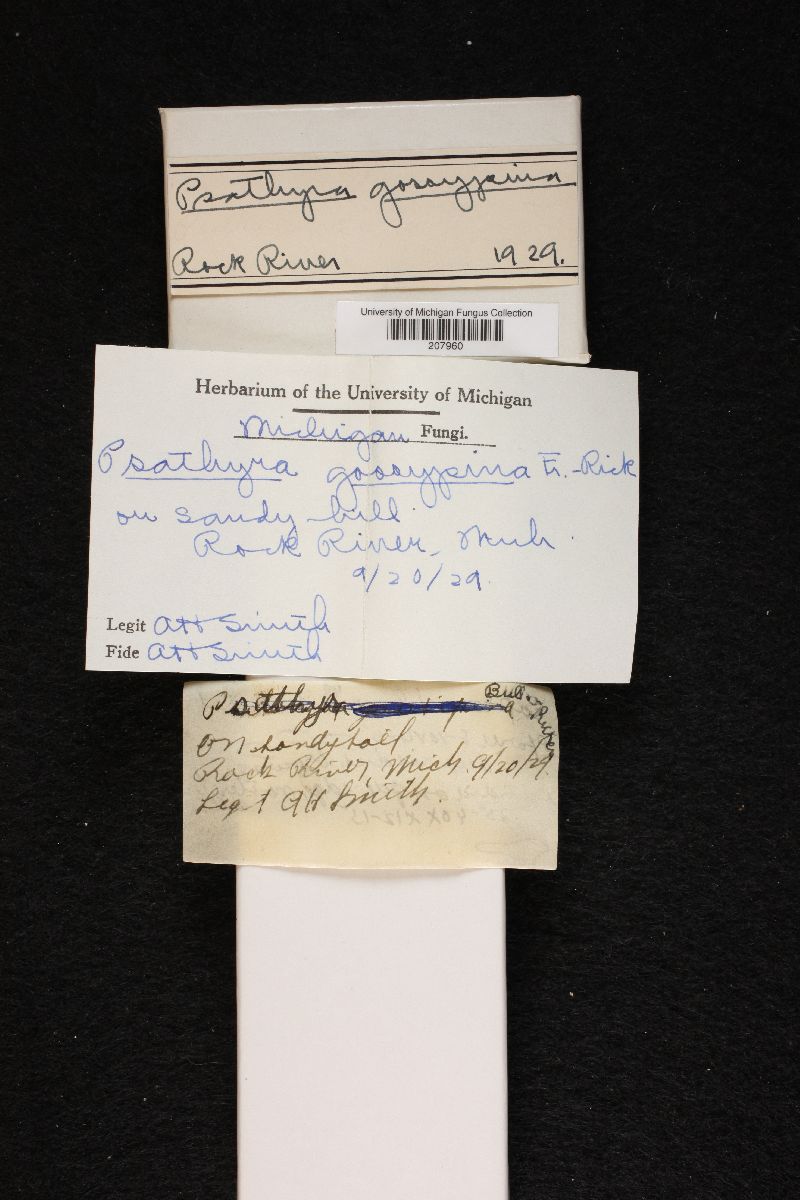 Psathyra gossypina
Rock River 1929.
University of Michigan Fungus Collection
207960
Herbarium of the University of Michigan
Michigan Fungi.
Psathyra gossypina Fr. - Rick
on sandy hill
Rock River, Mich.
9/20/29.
Legit AH Smith
Fide AH Smith
Psathyra
on sandy soil
Rock River, Mich. 9/20/29.
Legit AH Smith.